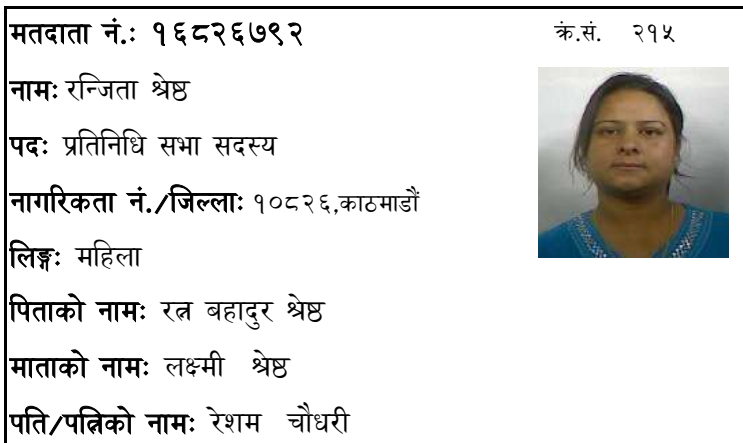 मतदाता नं.: १६८२६७९२ क्रं.सं. २१५
नाम: रन्जिता श्रेष्ठ
पद: प्रतिनिधि सभा सदस्य
नागरिकता नं./जिल्ला: १०८२६,काठमाडौं
लिङ्ग: महिला
पिताको नाम: रत्न बहादुर श्रेष्ठ
माताको नाम: लक्ष्मी श्रेष्ठ
पति/पत्निको नाम: रेशम चौधरी